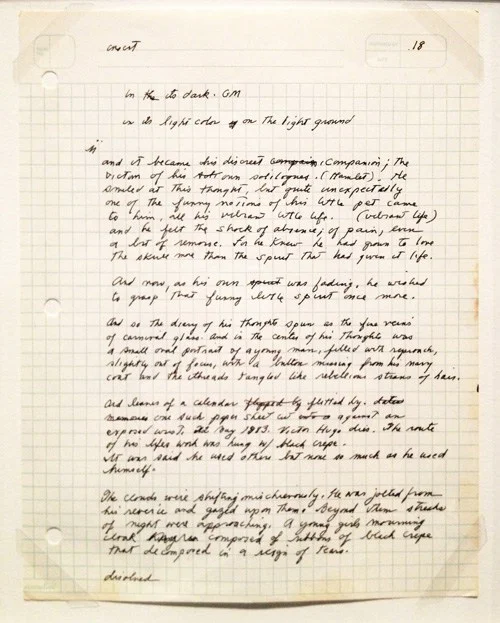 insert
.18
in the its dark. GM
in its light color on the light ground
and it became his discreet companion; the
victim of his own soliloquies. (Hamlet). He
smiled at this thought, but quite unexpectedly
one of the funny notions of his little pet came
to him, all his vibrant little life. (vibrant life)
and he felt the shock of absence, of pain, even
a bit of remorse. For he knew he had grown to love
the skull more than the spirit that had given it life.
And now, as his own spirit was fading, he wished
to grasp that funny little spirit once more.
And so the diary of his thoughts spun as the fine veins
of carnival glass. And in the center of his thoughts was
a small oval portrait of a young man, filled with reproach,
slightly out of focus, with a button missing from his navy
coat and the threads tangled like rebellious strains of hair.
And leaves of a calendar flipped by flitted by. dates
memories one such paper sheet cut against an
exposed wrist, May 1883. Victor Hugo dies. The route
of his lifes work was hung w/ black crepe.
It was said he used others but none so much as he used
himself.
The clouds were shifting mischievously. He was jolted from
his reverie and gazed upon them. Beyond them streaks
of night were approaching. A young girls mourning
cloak composed of ribbons of black crepe
that decomposed in a reign of tears.
dissolved